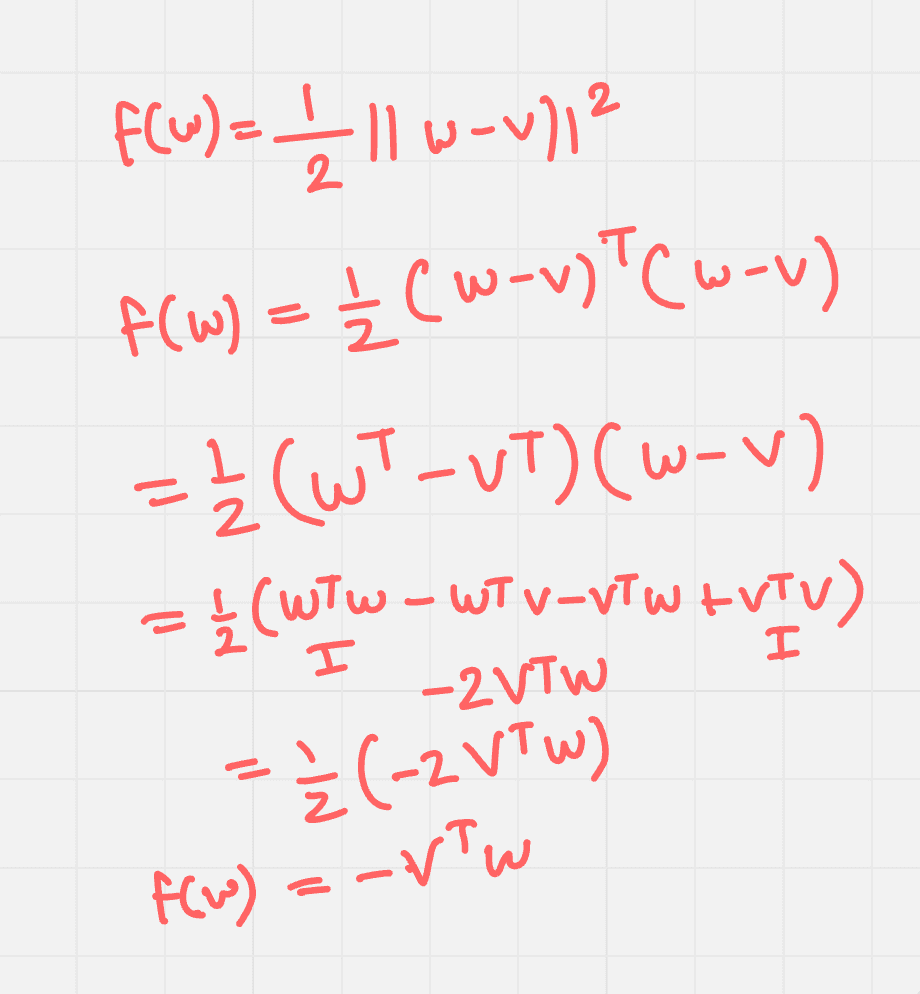 f(w) = 1/2 || w - v)||²
f(w) = 1/2 (w - v)ᵀ (w - v)
= 1/2 (wᵀ - vᵀ)(w - v)
= 1/2 (wᵀw - wᵀv - vᵀw + vᵀv)
I I
-2vᵀw
= 1/2 (-2vᵀw)
f(w) = -vᵀw